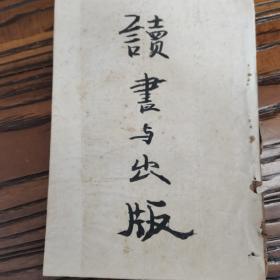 讀書与出版